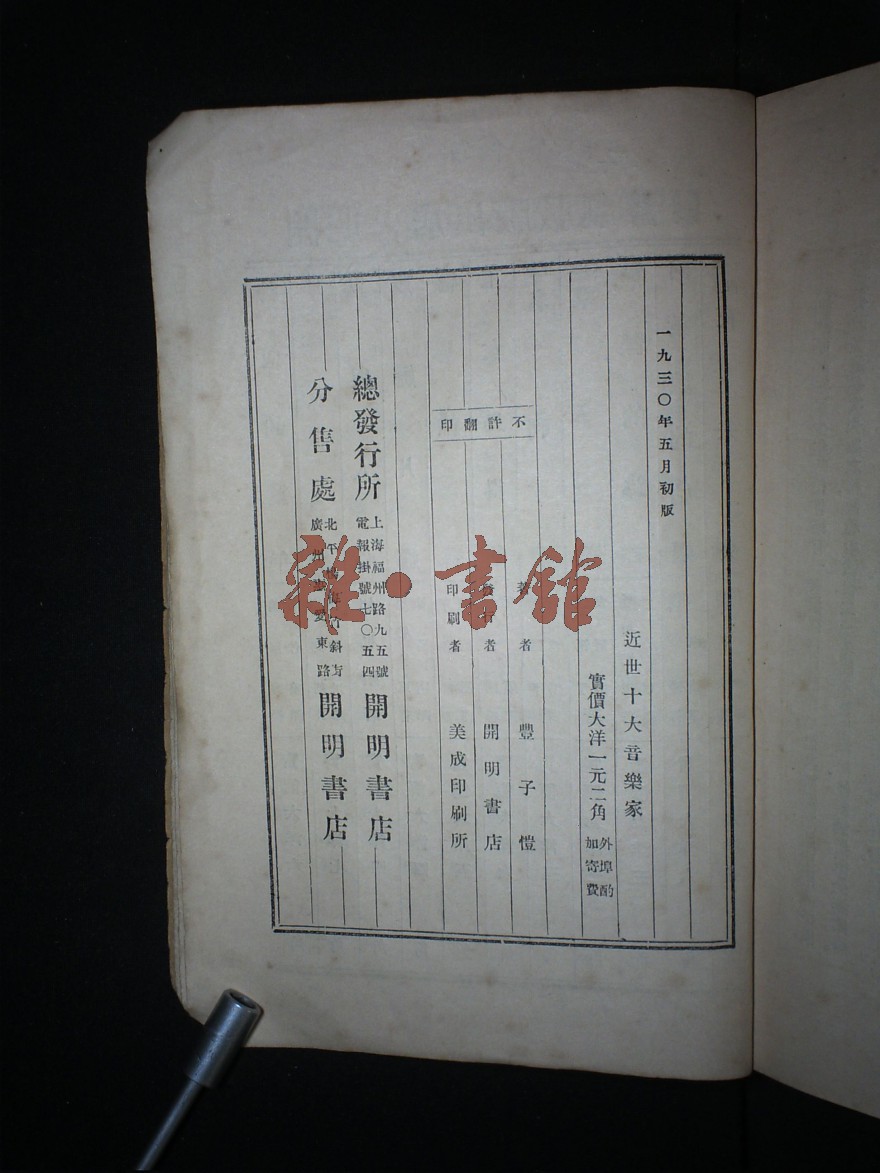 一九三〇年五月初版
近世十大音樂家
實價大洋一元二角
外埠酌
加寄費
不許翻印
著者 豐子愷
者 開明書店
印刷者 美成印刷所
總發行所
上海福州路九五號
電報掛號七〇五四
開明書店
分售處
北平 斜街
廣州 東路
開明書店
雜·書館